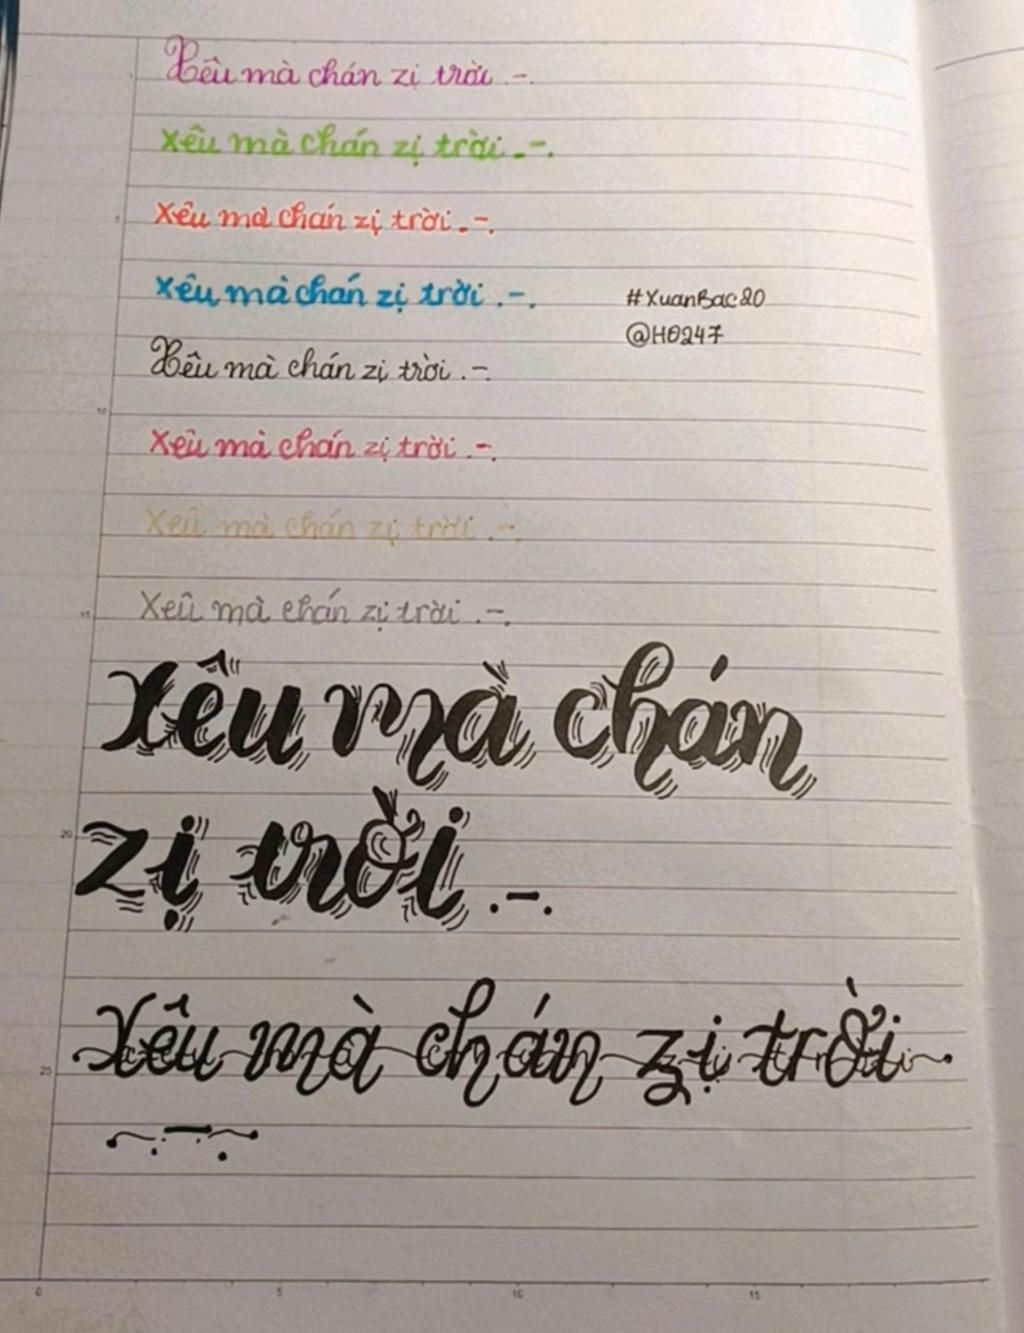 Xêu mà chán zị trời .-.
Xêu mà chán zị trời .-.
Xêu mà chán zị trời .-.
Xêu mà chán zị trời .-.
#XuanBac20
@H0247
Xêu mà chán zị trời .-.
Xêu mà chán zị trời .-.
Xêu mà chán zị trời .-.
Xêu mà chán zị trời .-.
Xêu mà chán
zị trời .-.
Xêu mà chán zị trời
.-.
10
15
20
25
0 5 10 15